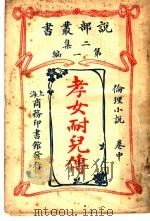 說部叢書
二集
第一編
倫理小說 卷中
孝女耐兒傳
上海
商務印書館發行